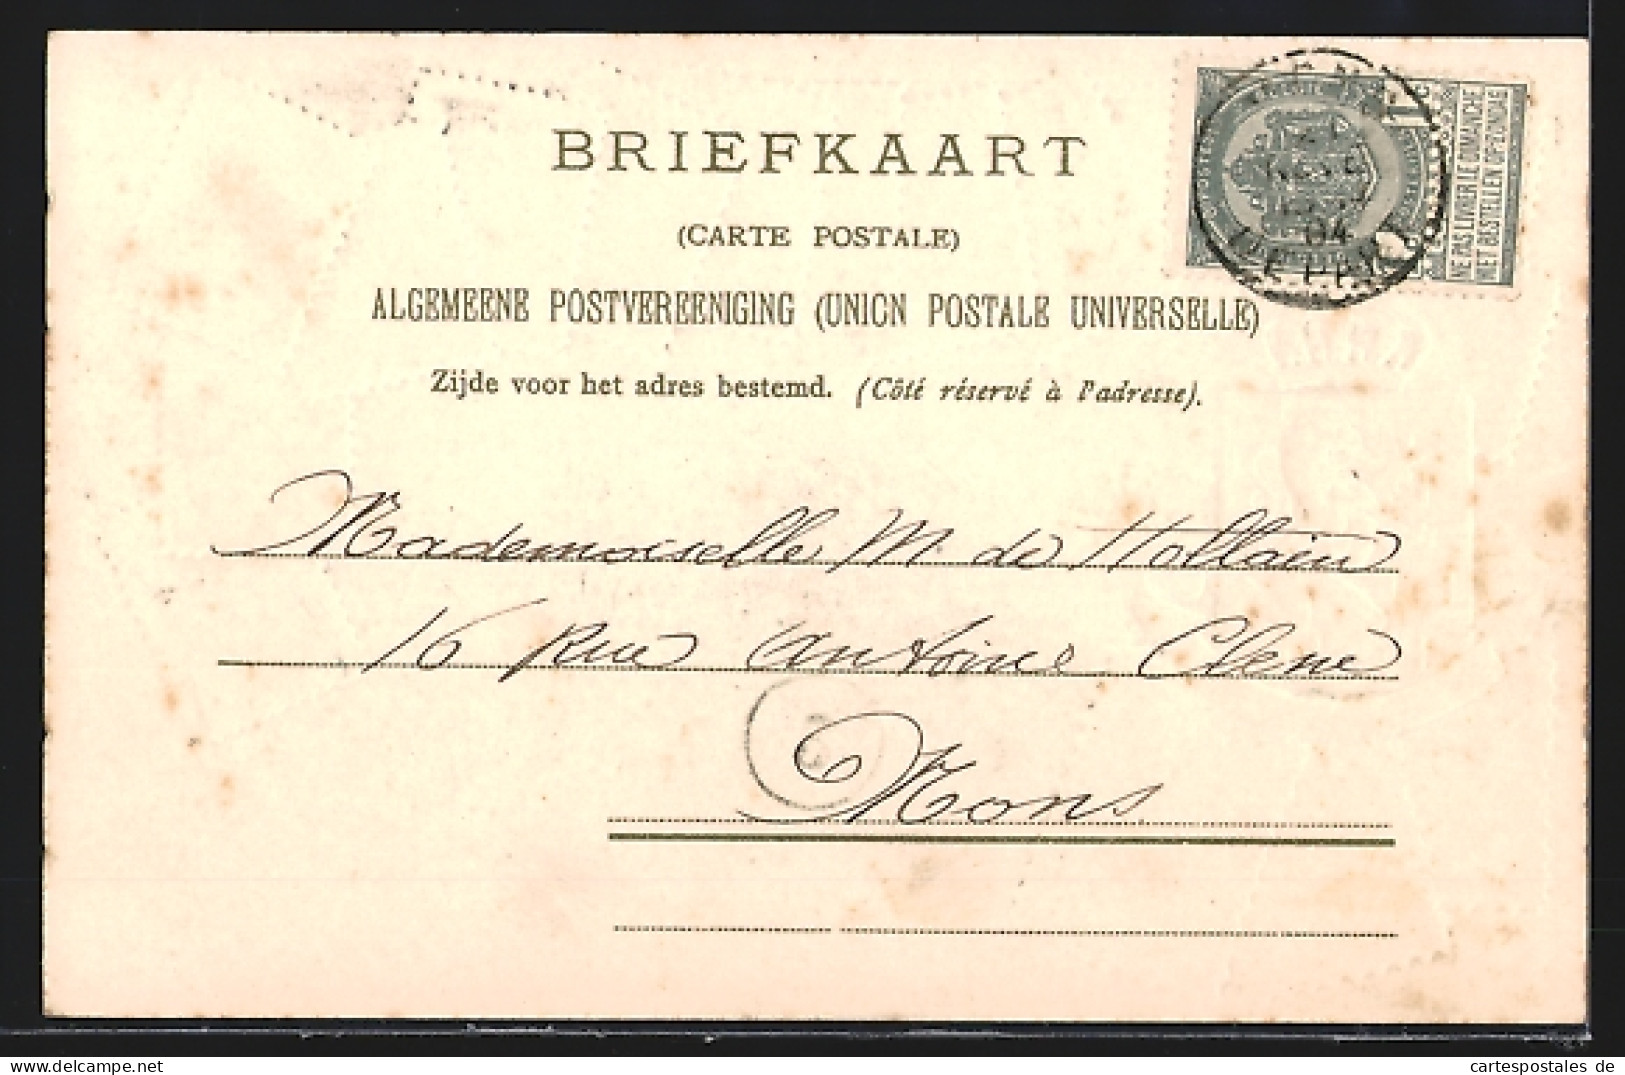 BRIEFKAART
(CARTE POSTALE)
ALGEMEENE POSTVEREENIGING (UNION POSTALE UNIVERSELLE)
Zijde voor het adres bestemd. (Côté réservé à l'adresse).
NE PAS LIVRER LE DIMANCHE
NIET BESTELLEN OP ZONDAG
04
DEPART
Mademoiselle M. de Hollain
16 Rue Antoine Clesse
Mons
cartespostales de